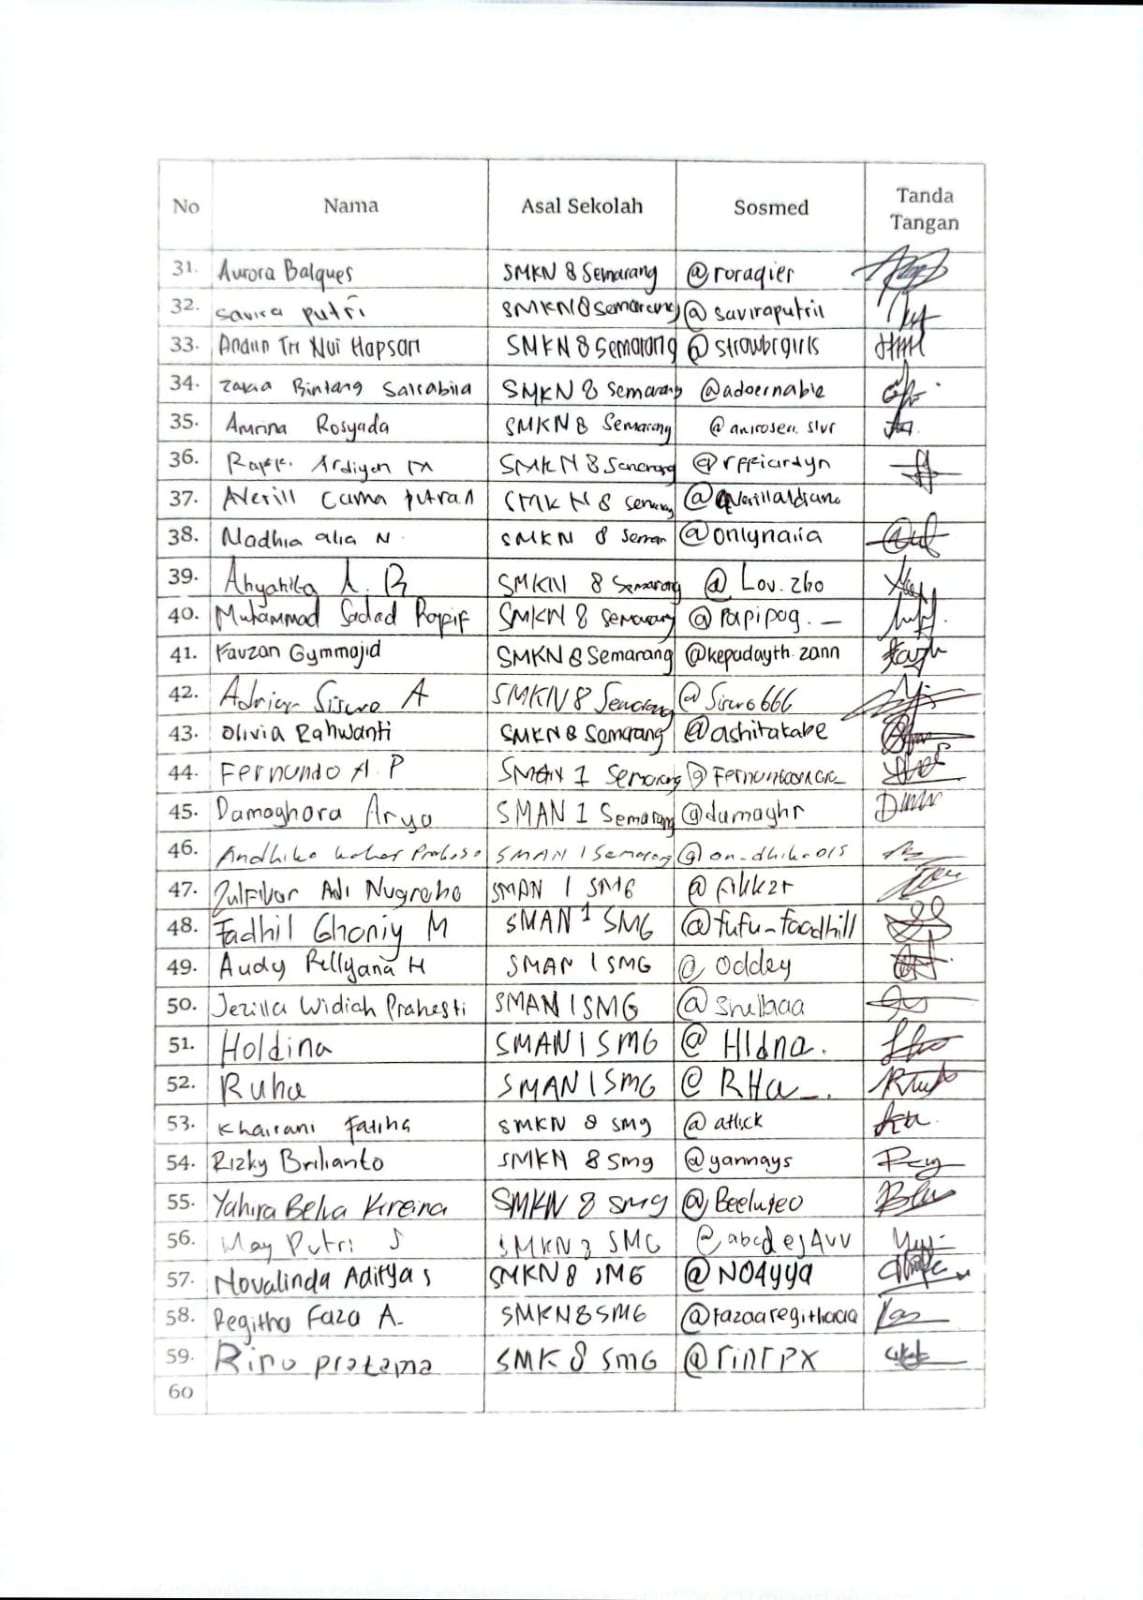 No Nama Asal Sekolah Sosmed Tanda Tangan
31. Aurora Balques SMKN 8 Semarang @roraqier
32. savira putri SMKN 8 Semarang @saviraputril
33. Andin Tri Nui Hapsari SMKN 8 Semarang @strawbrgirls
34. Zakia Bintang Salsabila SMKN 8 Semarang @adoernable
35. Amrina Rosyada SMKN 8 Semarang
36. Raffi Ardiyan SMKN 8 Semarang @rffiardyn
37. Averill SMKN 8 Semarang
38. Nadhia alia N. SMKN 8 @onlynalia
39. SMKN 8 Semarang @Lov.zho
40. Muhammad Sadad SMKN 8 Semarang @papipog._
41. Fauzan Gymmajid SMKN 8 Semarang @kepadayth.zann
42. A SMKN 8 Semarang
43. Olivia Rahwanti SMKN 8 Semarang @ashitakabe
44. Fernando A.P SMAN 1 Semarang
45. Damaghara Arya SMAN 1 Semarang @damaghr
46. Andhika SMAN 1 Semarang
47. Zulfikar Adi Nugroho SMAN 1 SMG @fikkzr
48. Fadhil Ghoniy M SMAN 1 SMG @fufu_foodhill
49. Audy Rellyana H SMAN 1 SMG @oddey
50. Jezilla Widiah Prahesti SMAN 1 SMG @snelbaa
51. Holdina SMAN 1 SMG @Hldna.
52. Ruha SMAN 1 SMG @RHa_.
53. Khairani Fatiha SMKN 8 smg @atlick
54. Rizky Brilianto SMKN 8 Smg @yannays
55. Yahira Belva Kireina SMKN 8 smg
56. May Putri S SMKN 8 SMG
57. Novalinda Aditya s SMKN 8 SMG @NO4yya
58. Regitha Faza A. SMKN 8 SMG
59. Rino pratama SMK 8 SMG @rinrpx
60